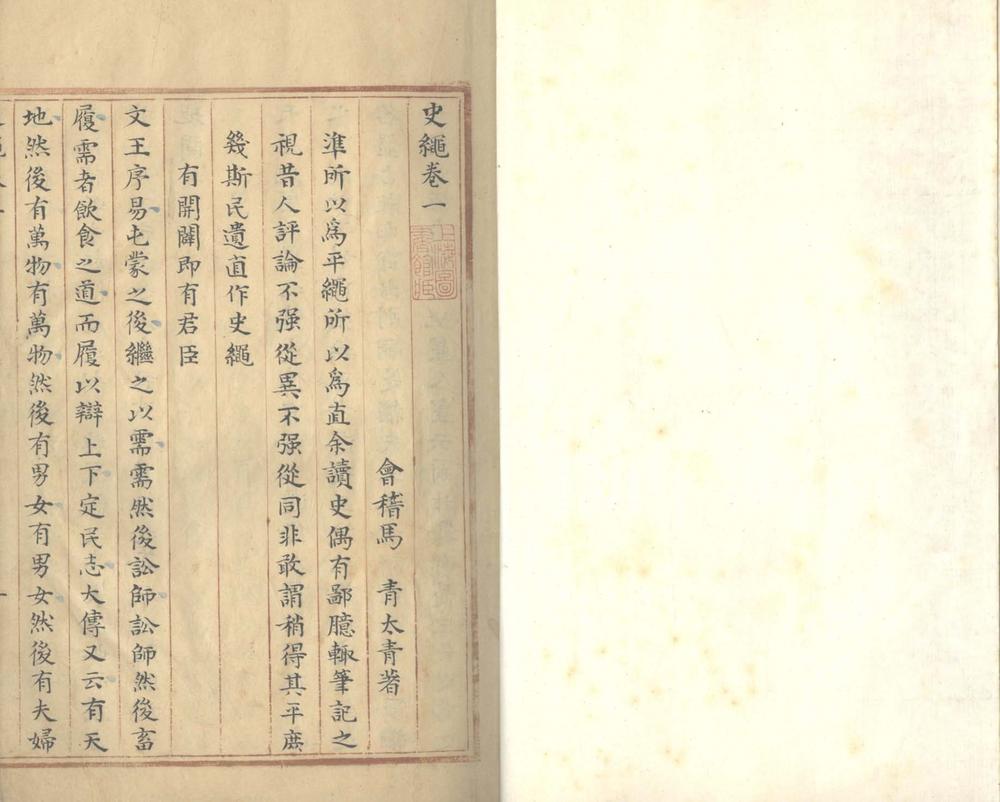 史繩卷一
會稽馬 青太青著
準所以爲平繩所以爲直余讀史偶有鄙臆輙筆記之
視昔人評論不强從異不强從同非敢謂稍得其平庶
幾斯民遺直作史繩
有開闢即有君臣
文王序易屯蒙之後繼之以需需然後訟師訟師然後畜
履需者飲食之道而履以辯上下定民志大傳又云有天
地然後有萬物有萬物然後有男女有男女然後有夫婦
上海圖書館藏